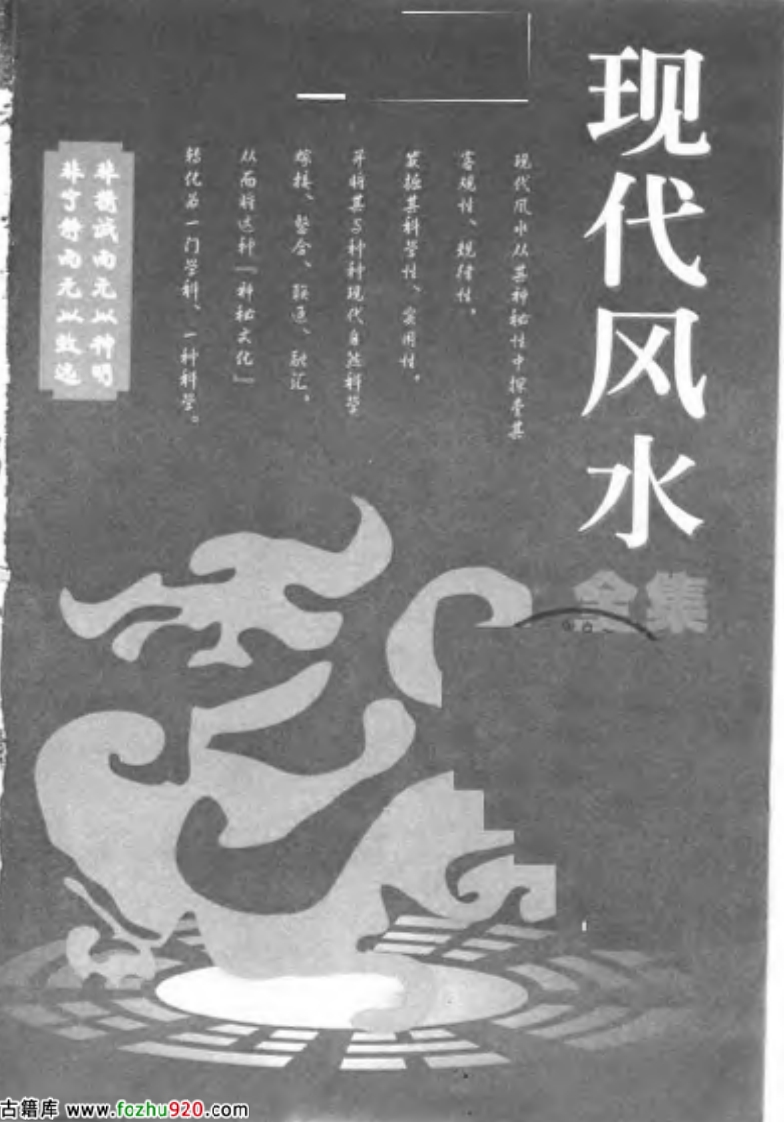 现代风水
全集
现代风水从其神秘性中探索其
客观性、规律性，
发掘其科学性、实用性，
并将其与种种现代自然科学
嫁接、整合、联通、融汇，
从而将这种“神秘文化”
转化为一门学科、一种科学。
非精诚而无以神明
非宁静而无以致远
古籍库 www.fozhu920.com